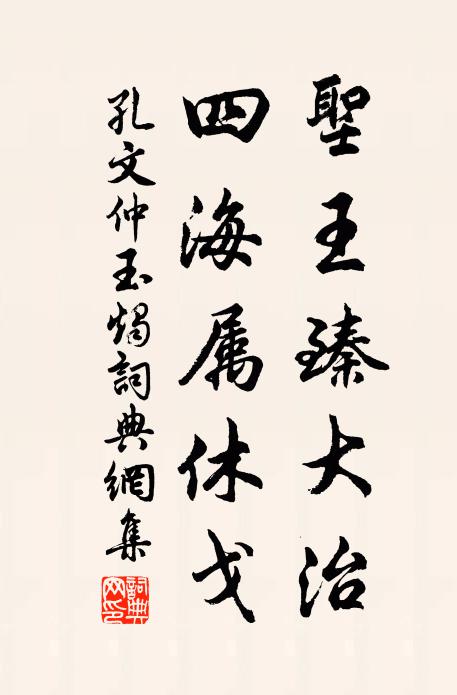 聖王臻大治
四海属休戈
孔文仲玉燭詞典網集
詞典网印